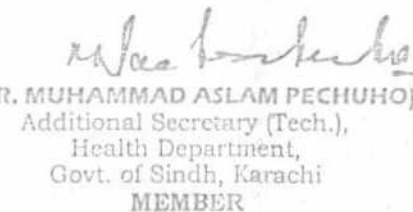 R. MUHAMMAD ASLAM PECHUHO
Additional Secretary (Tech.),
Health Department,
Govt. of Sindh, Karachi
MEMBER